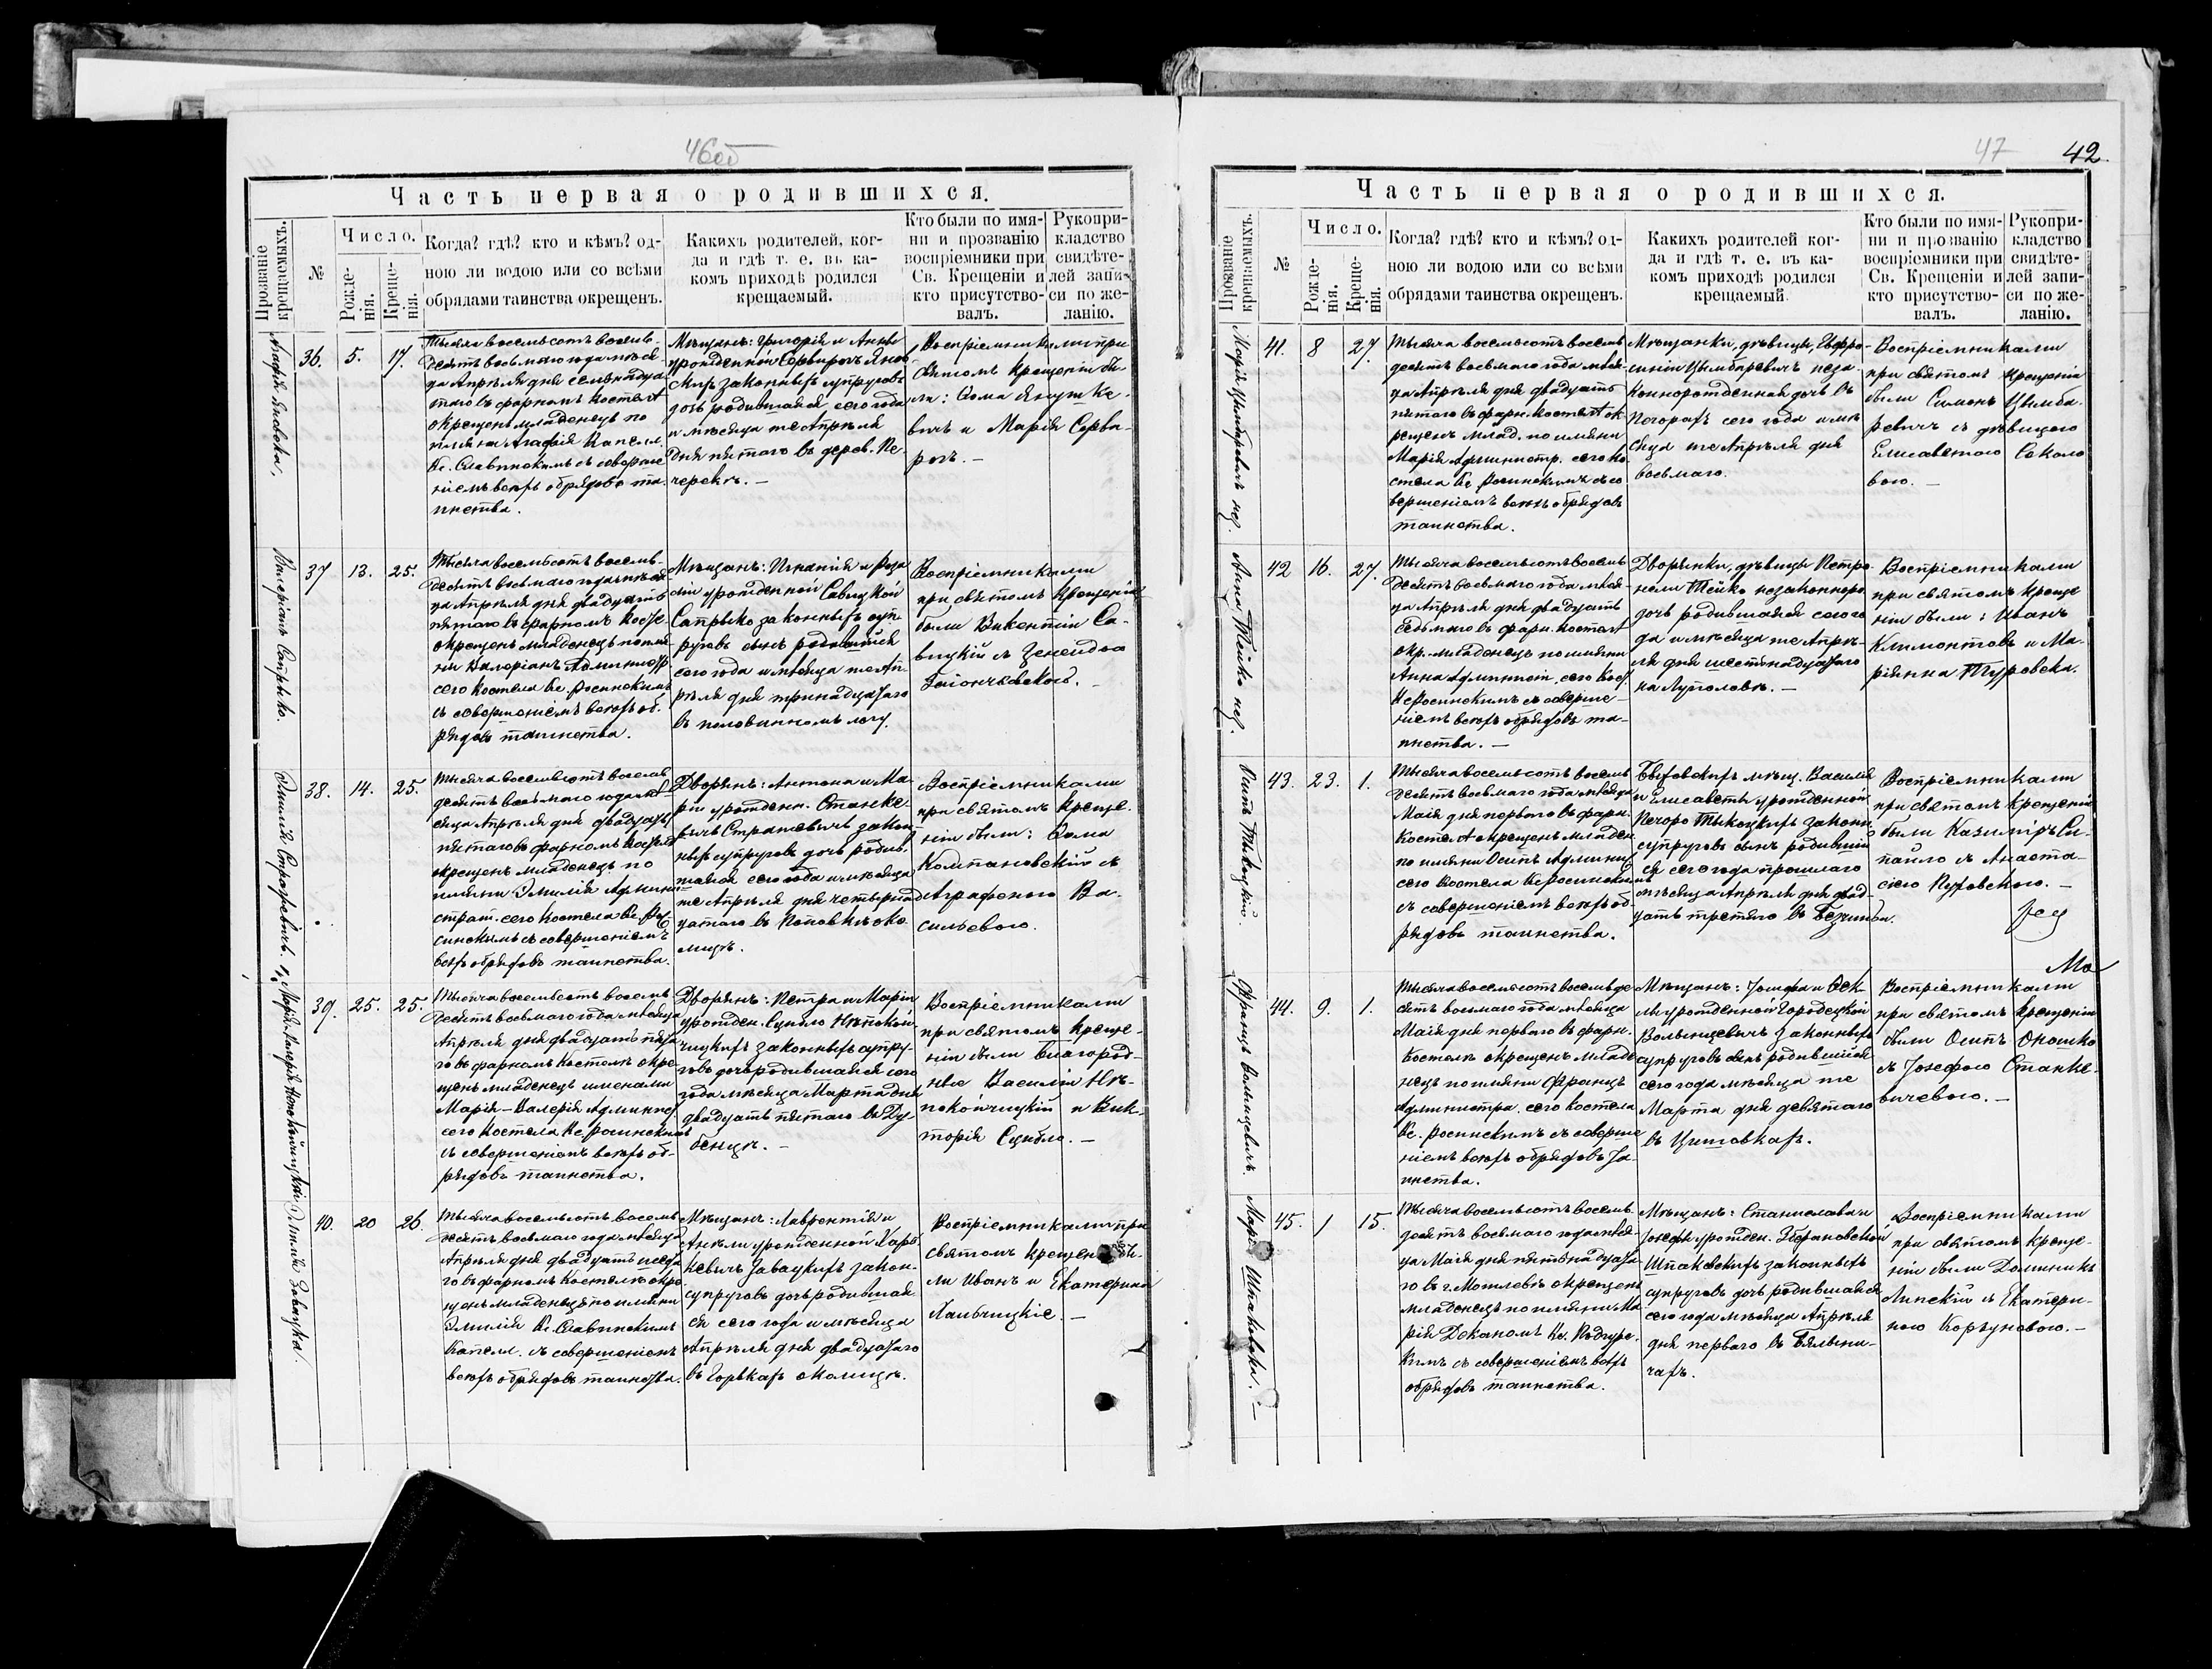 46об
Часть первая о родившихся.
Прозваніе крещаемыхъ.
№
Число.
Рожде-
нія.
Креще-
нія.
Когда? гдѣ? кто и кѣмъ? од-
ною ли водою или со всѣми
обрядами таинства окрещенъ.
Какихъ родителей, ког-
да и гдѣ т. е. въ ка-
комъ приходѣ родился
крещаемый.
Кто были по имя-
ни и прозванію
воспріемники при
Св. Крещеніи и
кто присутство-
валъ.
Рукопри-
кладство
свидѣте-
лей запи-
си по же-
ланію.
36. 5. 17.
Тысяча восемьсотъ восемь-
десятъ восьмаго года мѣся-
ца Апрѣля дня семнадца-
таго въ фарномъ Костелѣ
окрещенъ младенецъ по
имяни Агафія Капелл.
Кс. Славинскимъ съ соверше-
ніемъ всѣхъ обрядовъ та-
инства.
Мѣщанъ: Григорія и Анны
законныхъ супруговъ
дочь родившаяся сего года
и мѣсяца же Апрѣля
дня пятаго въ дерев. Пе-
черскѣ.
Воспріемниками при
святомъ Крещеніи бы-
ли: Ѳома Янушке-
вичъ и Марія Серва-
рогъ.
37 13. 25.
Валеріанъ Сапрыко.
Тысяча восемьсотъ восемь-
десятъ восьмаго года мѣся-
ца Апрѣля дня двадцать
пятаго въ фарномъ Косте.
окрещенъ младенецъ по имя-
ни Валеріанъ Администр.
сего Костела Кс. Росинскимъ
съ совершеніемъ всѣхъ об-
рядовъ таинства.
Мѣщанъ: Игнатія и Роза-
ліи урожденной Савицкой
Сапрыко законныхъ суп-
руговъ сынъ родившійся
сего года и мѣсяца же Ап-
рѣля дня тринадцатаго
въ половинномъ логу.
Воспріемниками
при святомъ Крещеніи
были Викентій Са-
вицкій съ Зенеидою
38. 14. 25.
Тысяча восемьсотъ восемь
десятъ восьмаго года мѣ-
сяца Апрѣля дня двадцать
пятаго въ фарномъ Костелѣ
окрещенъ младенецъ по
имяни Эмилія Админи-
страт. сего Костела Кс. Ро-
синскимъ съ совершеніемъ
всѣхъ обрядовъ таинства.
Дворянъ: Антона и Ма-
ріи урожденн. Станке-
вичъ закон-
ныхъ супруговъ дочь родив-
шаяся сего года и мѣсяца
же Апрѣля дня четырнад-
цатаго въ Поповкѣ око-
лицѣ.
Воспріемниками
при святомъ Креще-
ніи были: Ѳома
Компановскій съ
Аграфеною Ва-
сильевою.
39. 25. 25.
Тысяча восемьсотъ восемь
десятъ восьмаго года мѣсяца
Апрѣля дня двадцать пята-
го въ фарномъ Костелѣ окре-
щенъ младенецъ именами
Марія-Валерія Админис.
сего Костела Кс. Росинскимъ
съ совершеніемъ всѣхъ об-
рядовъ таинства.
Дворянъ: Петра и Маріи
урожден. Сцибло Нѣпокой-
чицкихъ законныхъ супру-
говъ дочь родившаяся сего
года мѣсяца Марта дня
двадцать пятаго въ Ду-
бенцѣ.
Воспріемниками
при святомъ Креще-
ніи были Благород-
ные Василій Нѣ-
покойчицкій и Вик-
торія Сцибло.
40. 20 26.
Тысяча восемьсотъ восемь
десятъ восьмаго года мѣсяца
Апрѣля дня двадцать шеста-
го въ фарномъ Костелѣ окре-
щенъ младенецъ по имяни
Эмилія Кс. Славинскимъ
Капелл. съ совершеніемъ
всѣхъ обрядовъ таинства.
Мѣщанъ: Лаврентія и
Анели урожденной
Завацкихъ закон.
супруговъ дочь родивша-
яся сего года и мѣсяца
Апрѣля дня двадцатаго
въ Горкахъ околицѣ.
Воспріемниками при
святомъ Крещеніи бы-
ли Иванъ и Екатерина
47 42.
Часть первая о родившихся.
Прозваніе крещаемыхъ.
№
Число.
Рожде-
нія.
Креще-
нія.
Когда? гдѣ? кто и кѣмъ? од-
ною ли водою или со всѣми
обрядами таинства окрещенъ.
Какихъ родителей ког-
да и гдѣ т. е. въ ка-
комъ приходѣ родился
крещаемый.
Кто были по имя-
ни и прозванію
воспріемники при
Св. Крещеніи и
кто присутство-
валъ.
Рукопри-
кладство
свидѣте-
лей запи-
си по же-
ланію.
41. 8 27.
Марія Цымбаревичъ нез.
Тысяча восемьсотъ восемь
десятъ восьмаго года мѣся-
ца Апрѣля дня двадцать
въ фарн. Костелѣ ок-
рещенъ млад. по имяни
Марія Администр. сего Ко-
стела Кс. Росинскимъ съ со-
вершеніемъ всѣхъ обрядовъ
таинства.
Мѣщанки, дѣвицы, Ефро-
синіи Цымбаревичъ неза-
коннорожденная дочь въ
Пагоркѣ сего года и мѣ-
сяца же Апрѣля дня
восьмаго.
Воспріемниками
при святомъ Крещеніи
были Симонъ Цымба-
ревичъ съ дѣвицею
Елисаветою Соколо
вою.
42 16. 27.
Анна Тейко нез.
Тысяча восемьсотъ восемь
десятъ восьмаго года мѣся-
ца Апрѣля дня двадцать
седьмаго въ фарн. Костелѣ
окр. младенецъ по имяни
Анна Админист. сего Кост.
Кс Росинскимъ съ соверше-
ніемъ всѣхъ обрядовъ та-
инства.
Дворянки, дѣвицы Петро-
нели Тейко незаконнорож.
дочь родившаяся сего го-
да и мѣсяца же Апрѣ-
ля дня шестнадцатаго
на Луполовѣ.
Воспріемниками
при святомъ Креще
ніи были: Иванъ
Климонтовъ и Ма-
ріянна Туровска.
43. 23. 1.
Осипъ Тыкоцкій.
Тысяча восемьсотъ восемь
десятъ восьмаго года мѣсяца
Маія дня перваго въ фарн.
Костелѣ окрещенъ младен.
по имяни Осипъ Админис.
сего Костела Кс Росинскимъ
съ совершеніемъ всѣхъ об-
рядовъ таинства.
Быховскихъ мѣщ. Василія
и Елисаветы урожденной
Печоро Тыкоцкихъ законн.
супруговъ сынъ родившій-
ся сего года прошлаго
мѣсяца Апрѣля дня двад-
цать третяго въ
Воспріемниками
при святомъ Крещеніи
были Казиміръ Са-
пайло съ Анаста-
сіею Путовскою.
44. 9. 1.
Францъ Волынцевичъ.
Тысяча восемьсотъ восемьде
сятъ восьмаго года мѣсяца
Маія дня перваго въ фарн.
Костелѣ окрещенъ младе-
нецъ по имяни Францъ
Администра. сего Костела
Кс. Росинскимъ съ соверше
ніемъ всѣхъ обрядовъ та-
инства.
Мѣщанъ: Іозефа и Фек-
лы урожденной Городецкой
Волынцевичъ законныхъ
супруговъ сынъ родившійся
сего года мѣсяца же
Марта дня девятаго
въ Цитовкахъ.
Воспріемниками
при святомъ Крещеніи
были Осипъ Оношко
съ Іозефою Станке-
вичевою.
45. 1 15.
Марія Шпаковска.
Тысяча восемьсотъ восемь-
десятъ восьмаго года мѣся-
ца Маія дня пятнадцата-
го въ г. Могилевѣ окрещенъ
младенецъ по имяни Ма-
рія Деканомъ Кс. Подгурс-
кимъ съ совершеніемъ всѣхъ
обрядовъ таинства.
Мѣщанъ: Станислава и
Іозефы урожден. Збероновской
Шпаковскихъ законныхъ
супруговъ дочь родившаяся
сего года мѣсяца Апрѣля
дня перваго въ Бялыни-
чахъ.
Воспріемниками
при святомъ Креще-
ніи были Доминикъ
Липскій съ Екатери-
ною Корзуновою.